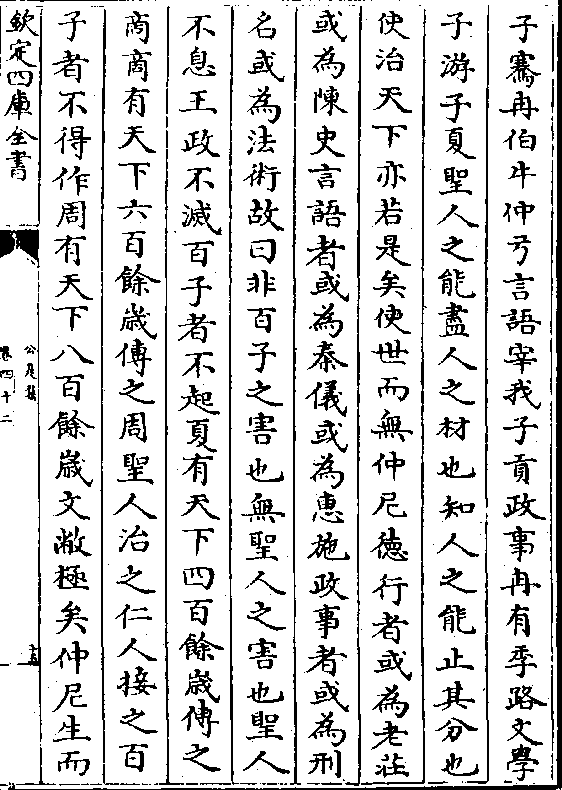 子騫冉伯牛仲弓言語宰我子貢政事冉有季路文學
子游子夏聖人之能盡人之材也知人之能止其分也
使治天下亦若是矣使世而無仲尼德行者或為老莊
或為陳史言語者或為秦儀或為惠施政事者或為刑
名或為法術故曰非百子之害也無聖人之害也聖人
不息王政不滅百子者不起夏有天下四百餘歲傳之
商商有天下六百餘歲傳之周聖人治之仁人接之百
子者不得作周有天下八百餘歲文敝極矣仲尼生而
欽定四庫全書
公是集
卷四十二